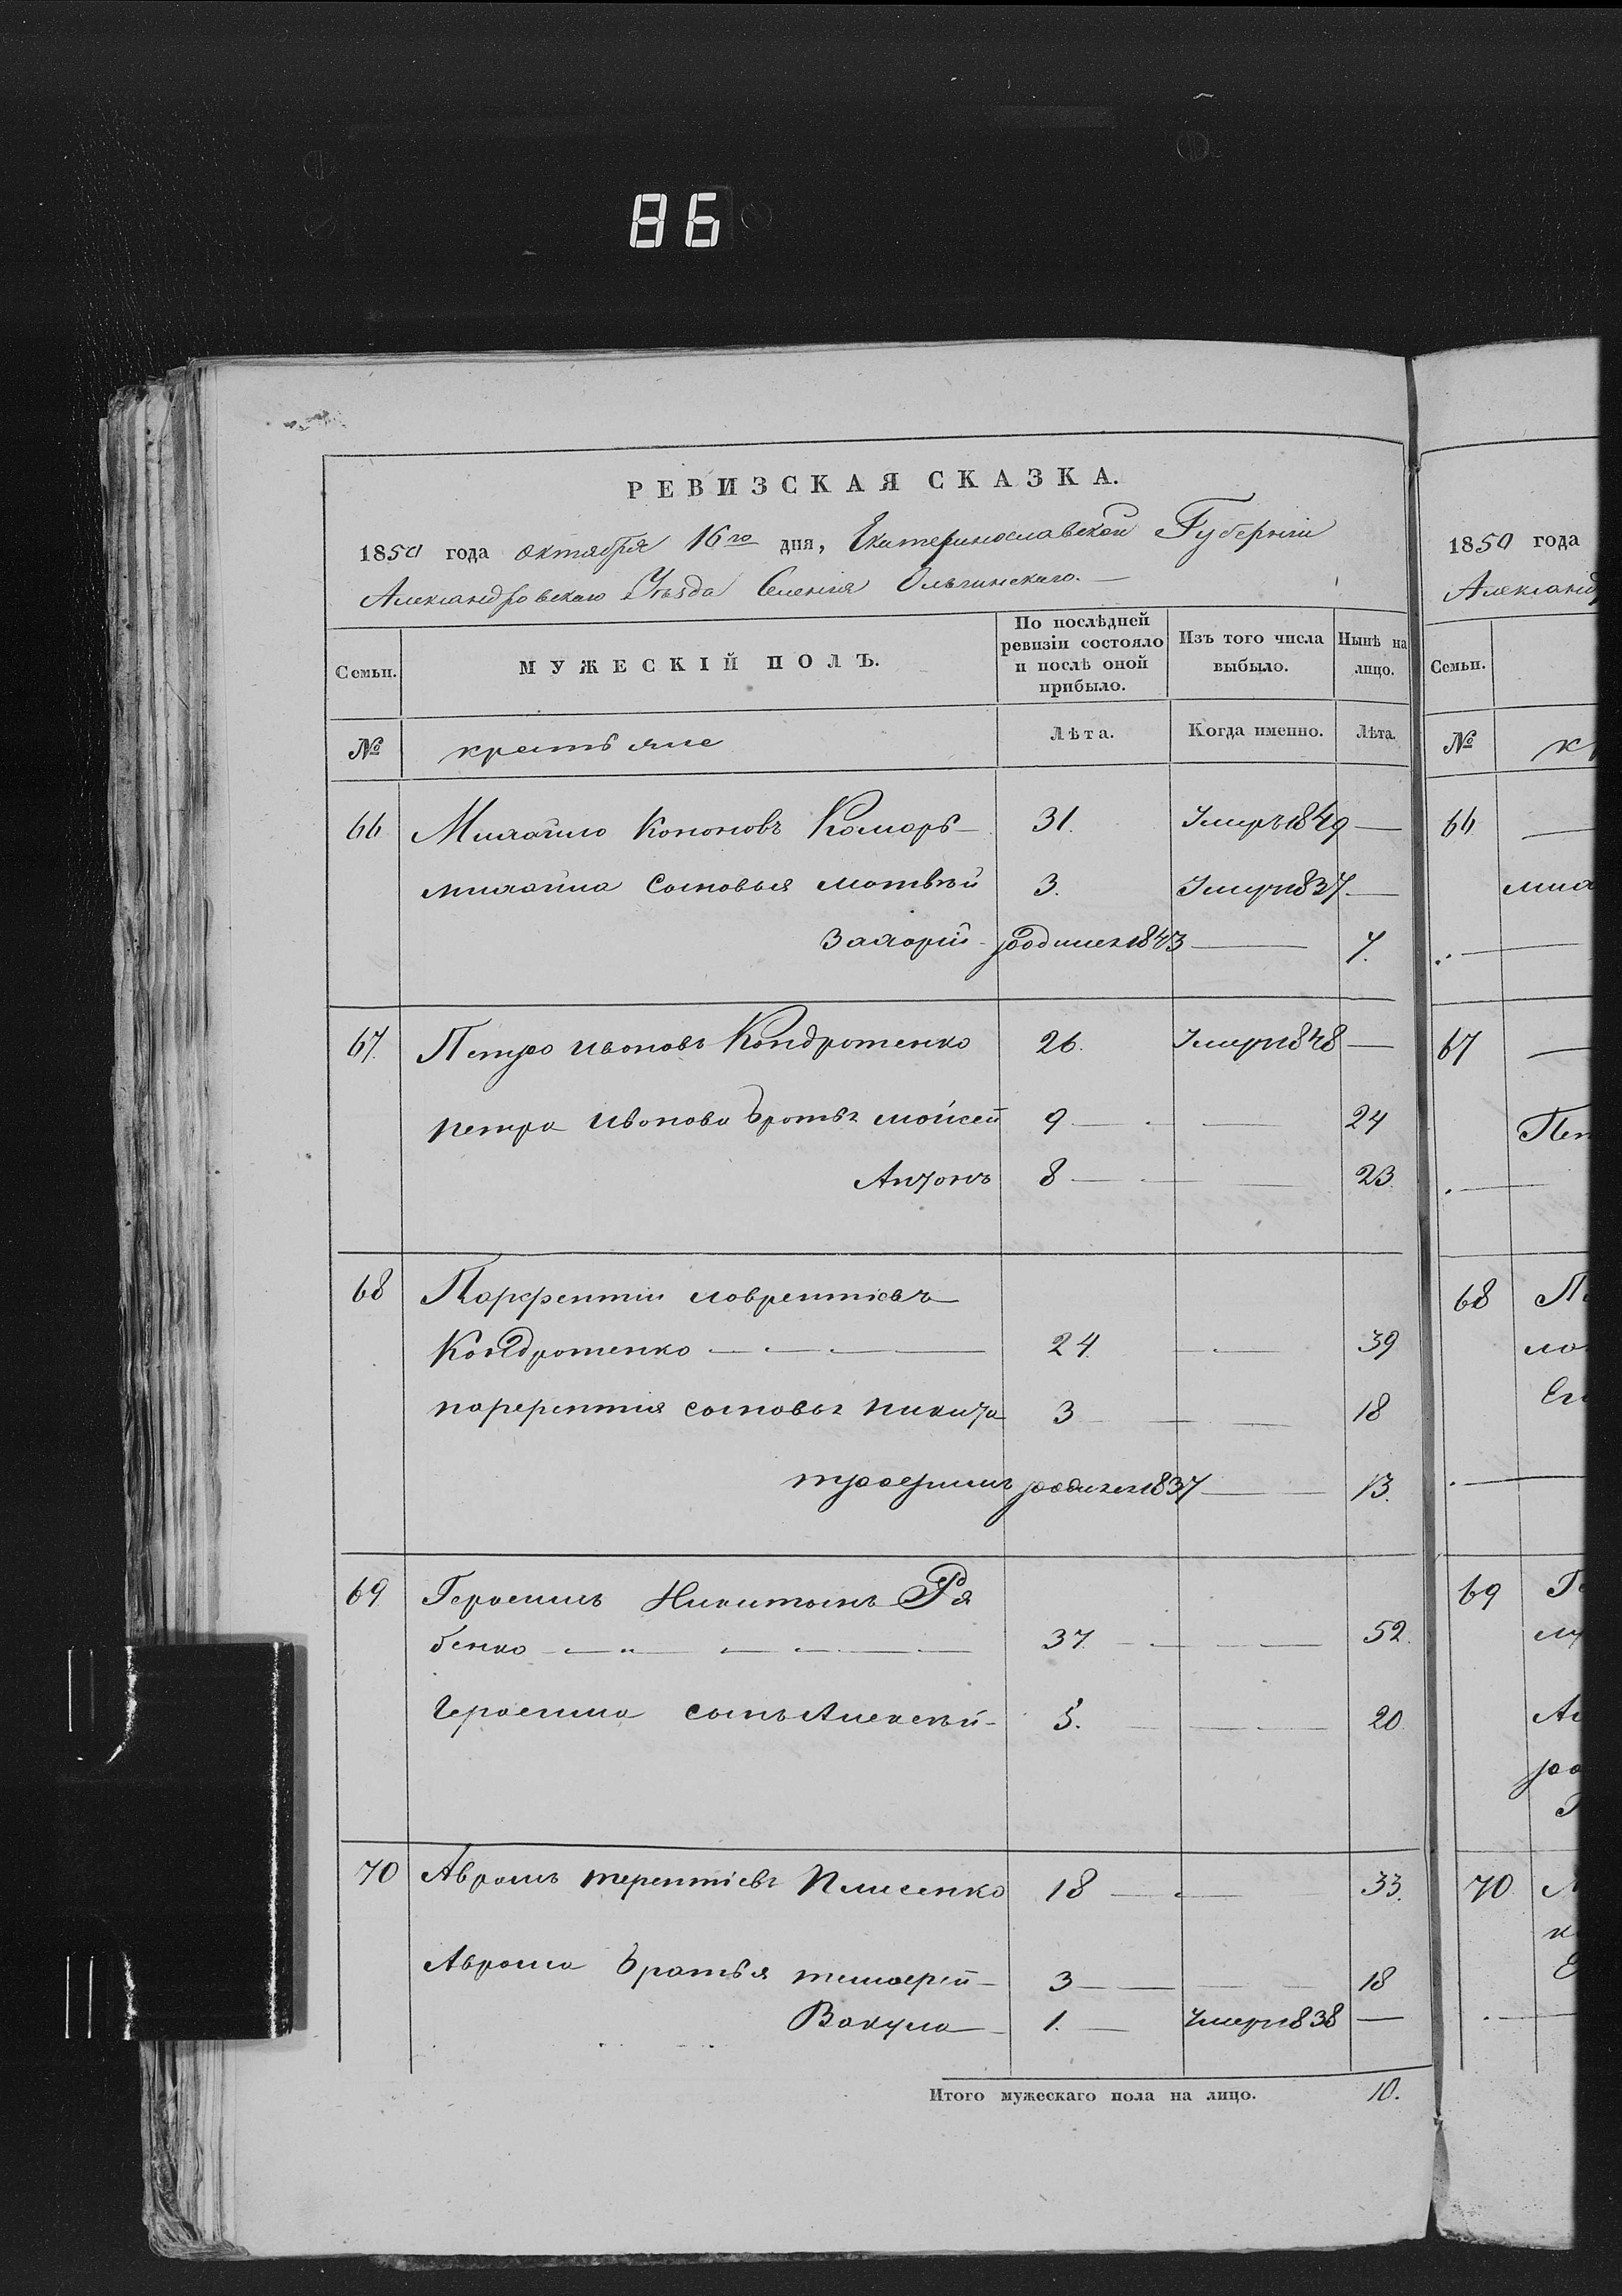 86
РЕВИЗСКАЯ СКАЗКА.
1850 года октября 16го дня, Екатеринославской Губернiи
Александровскаго Уѣзда Селенiя Ольгинскаго.
Семьи. МУЖЕСКІЙ ПОЛЪ. По послѣдней ревизіи состояло и послѣ оной прибыло. Изъ того числа выбыло. Нынѣ на лицо.
№ крестьяне Лѣта. Когда именно. Лѣта.
66 Михайло Кононовъ Коморъ 31. Умеръ 1849 —
михайла сыновья матвѣй 3. Умеръ 1837 —
Захарiй родился 1843 — 7.
67. Петро Ивановъ Кондратенко 26. Умеръ 1848 —
петра Иванова братья мойсей 9 — 24
Антонъ 8 — 23
68 Парфентiй лаврентiевъ
Кондратенко — 24. — 39
парфентiя сыновья никита 3 — 18
трофимъ родился 1837 — 13.
69 Герасимъ Никитинъ Ря
бенко — 37 — 52.
Герасима сынъ Алексѣй 5. — 20
70 Аврамъ терентiевъ Плисенко 18 — 33.
Аврама братья тимофей 3 — 18
Вакула 1. — Умеръ 1838 —
Итого мужескаго пола на лицо. 10.
1850 года
Александр
Семьи.
№ к
66 —
миха
67 —
Пет
68 П
ла
69 Г
70 А